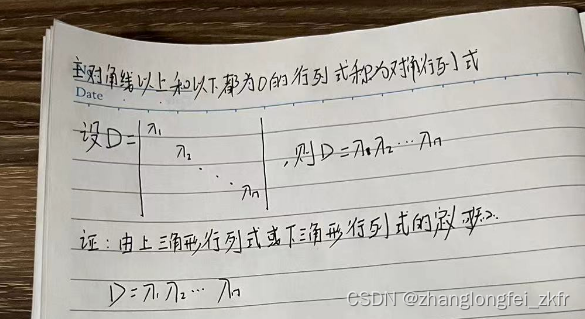 主对角线以上和以下都为0的行列式称为对角行列式
Date
设D=|λ₁ λ₂ ⋱ λₙ|,则D=λ₁λ₂…λₙ
证:由上三角形行列式或下三角形行列式的定义
D=λ₁λ₂…λₙ
CSDN @zhanglongfei_zkfr